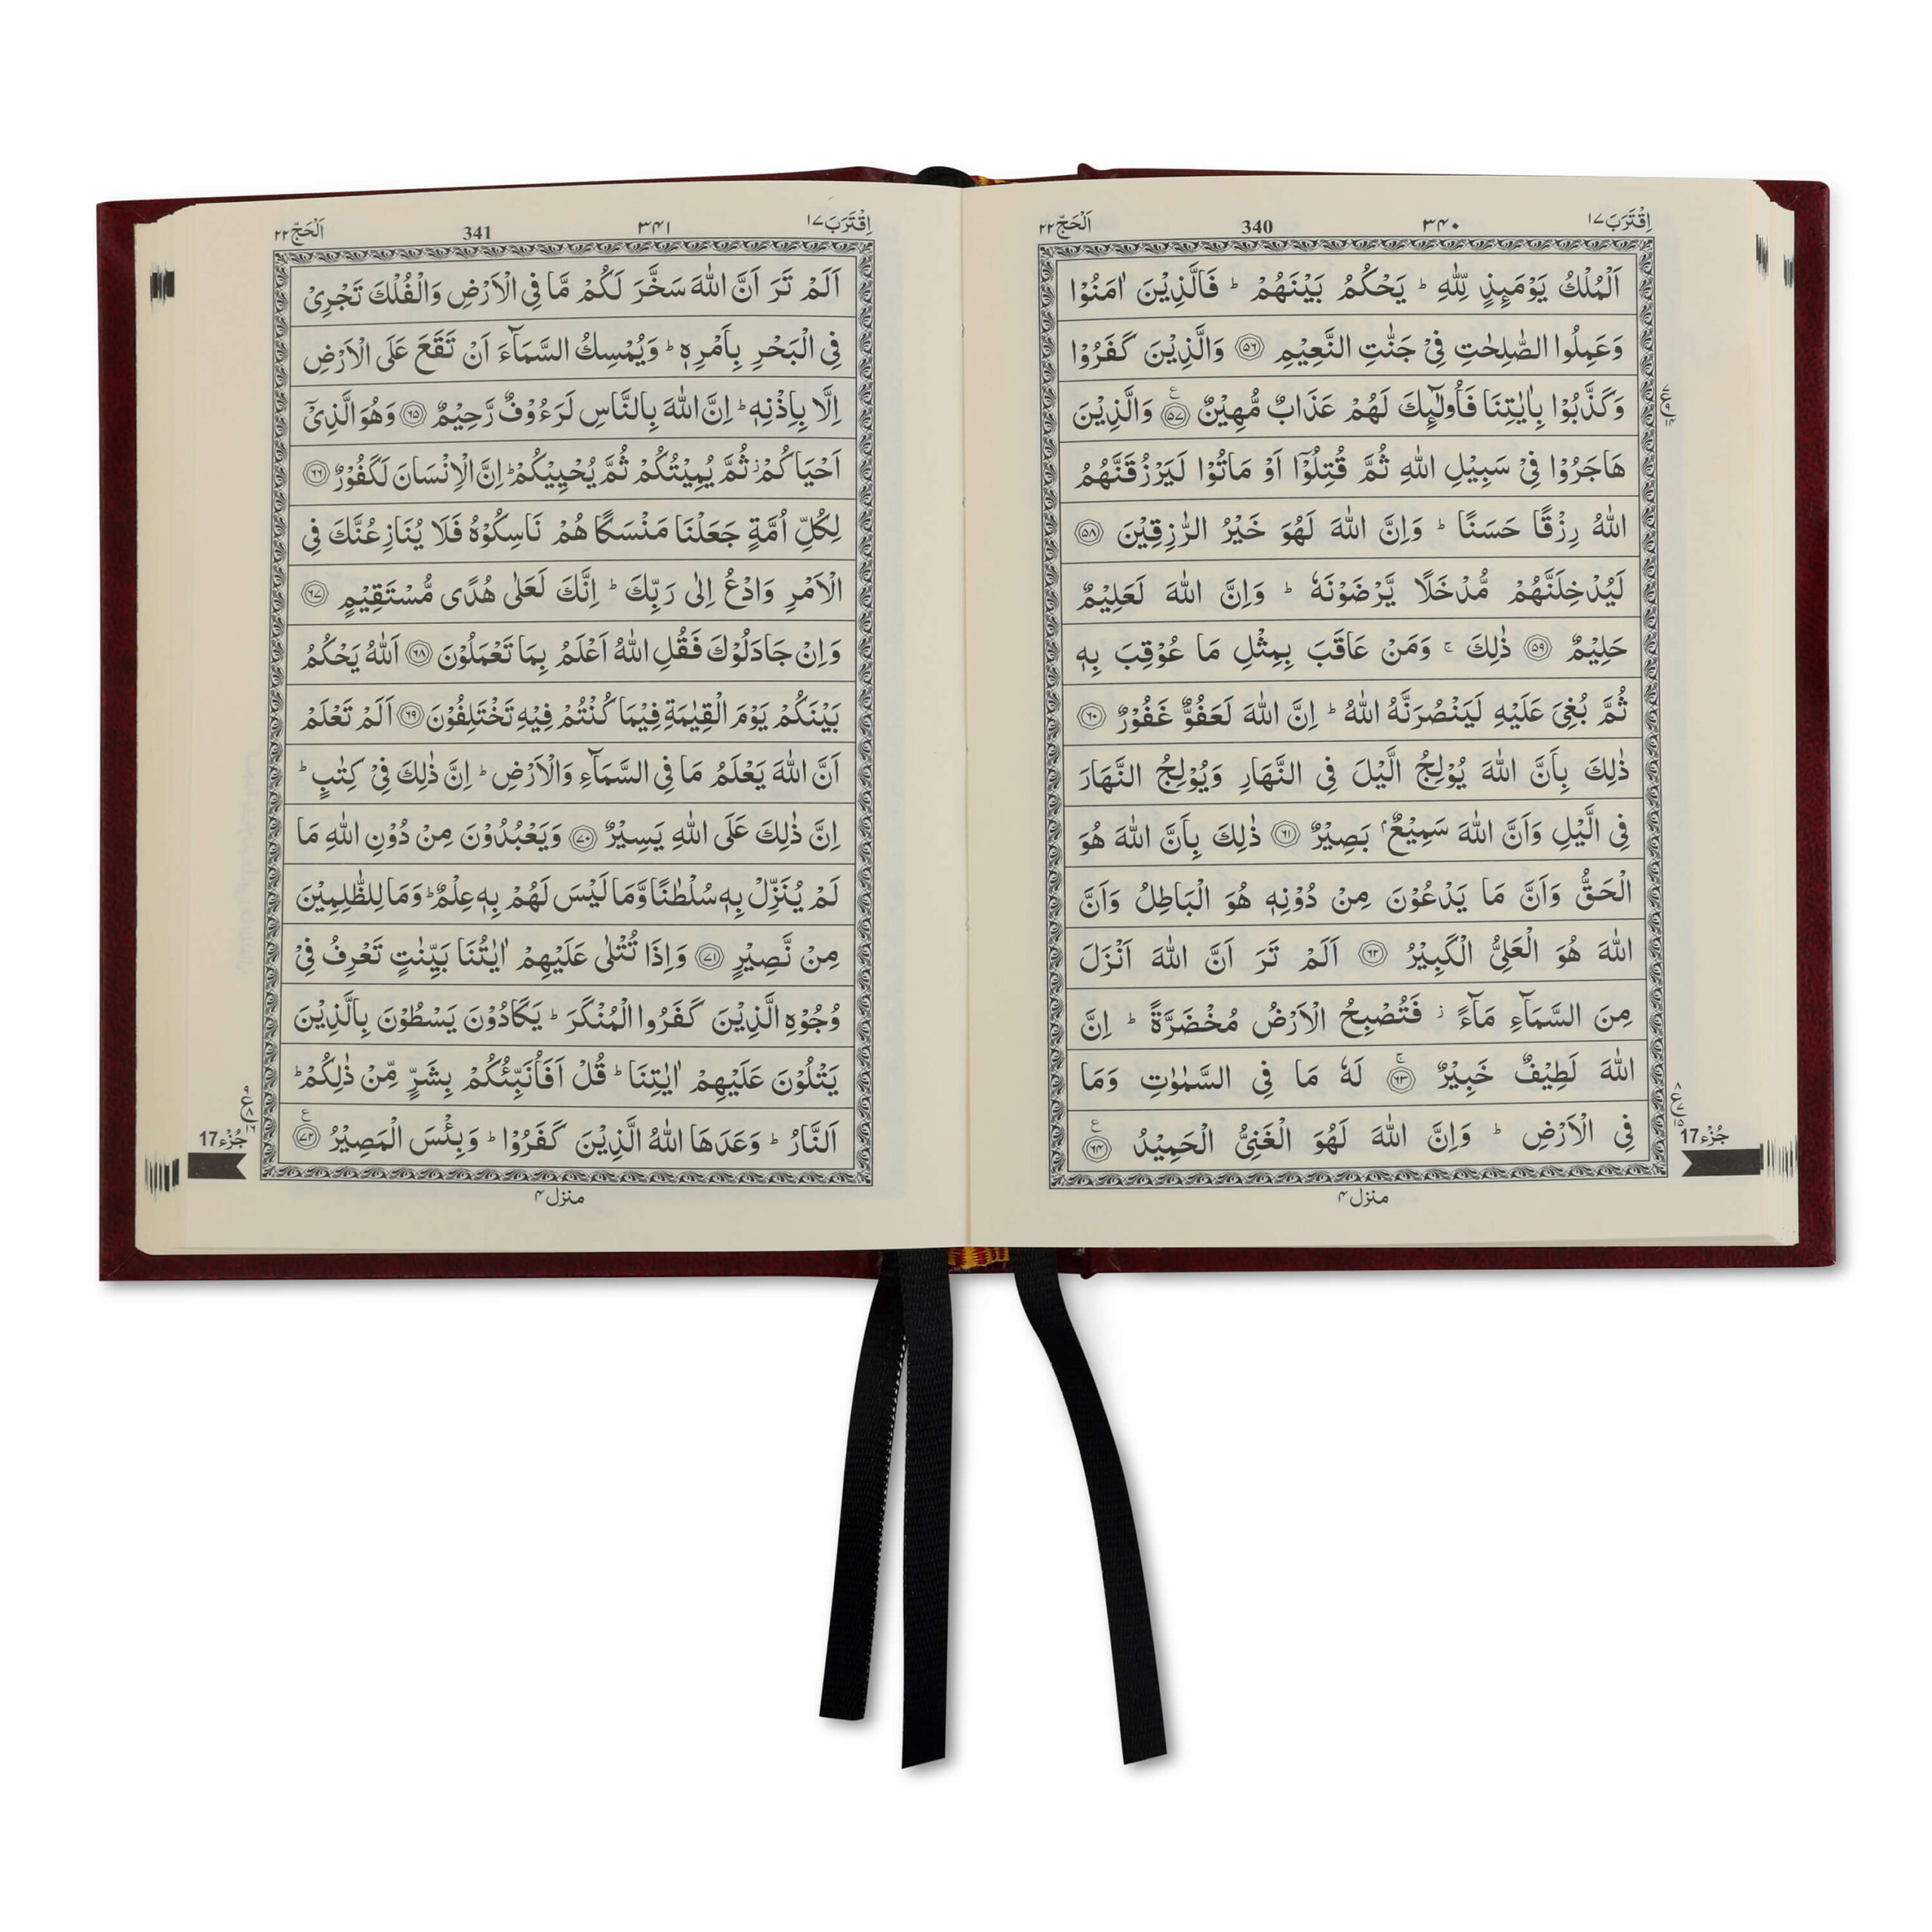 اِقْتَرَبَ ١٧ ٣۴٠ 340 اَلْحَجّ ٢٢
اَلْمُلْكُ يَوْمَىِٕذٍ لِّلّٰهِ ؕ يَحْكُمُ بَيْنَهُمْ ؕ فَالَّذِيْنَ اٰمَنُوْا
وَعَمِلُوا الصّٰلِحٰتِ فِيْ جَنّٰتِ النَّعِيْمِ ۝٥٦ وَالَّذِيْنَ كَفَرُوْا
وَكَذَّبُوْا بِاٰيٰتِنَا فَاُولٰٓىِٕكَ لَهُمْ عَذَابٌ مُّهِيْنٌ ۝٥٧ ع وَالَّذِيْنَ
هَاجَرُوْا فِيْ سَبِيْلِ اللّٰهِ ثُمَّ قُتِلُوْٓا اَوْ مَاتُوْا لَيَرْزُقَنَّهُمُ
اللّٰهُ رِزْقًا حَسَنًا ؕ وَاِنَّ اللّٰهَ لَهُوَ خَيْرُ الرّٰزِقِيْنَ ۝٥٨
لَيُدْخِلَنَّهُمْ مُّدْخَلًا يَّرْضَوْنَهٗ ؕ وَاِنَّ اللّٰهَ لَعَلِيْمٌ
حَلِيْمٌ ۝٥٩ ذٰلِكَ ۚ وَمَنْ عَاقَبَ بِمِثْلِ مَا عُوْقِبَ بِهٖ
ثُمَّ بُغِيَ عَلَيْهِ لَيَنْصُرَنَّهُ اللّٰهُ ؕ اِنَّ اللّٰهَ لَعَفُوٌّ غَفُوْرٌ ۝٦٠
ذٰلِكَ بِاَنَّ اللّٰهَ يُوْلِجُ الَّيْلَ فِي النَّهَارِ وَيُوْلِجُ النَّهَارَ
فِي الَّيْلِ وَاَنَّ اللّٰهَ سَمِيْعٌۢ بَصِيْرٌ ۝٦١ ذٰلِكَ بِاَنَّ اللّٰهَ هُوَ
الْحَقُّ وَاَنَّ مَا يَدْعُوْنَ مِنْ دُوْنِهٖ هُوَ الْبَاطِلُ وَاَنَّ
اللّٰهَ هُوَ الْعَلِيُّ الْكَبِيْرُ ۝٦٢ اَلَمْ تَرَ اَنَّ اللّٰهَ اَنْزَلَ
مِنَ السَّمَآءِ مَآءً ؗ فَتُصْبِحُ الْاَرْضُ مُخْضَرَّةً ؕ اِنَّ
اللّٰهَ لَطِيْفٌ خَبِيْرٌ ۝٦٣ۚ لَهٗ مَا فِي السَّمٰوٰتِ وَمَا
فِي الْاَرْضِ ؕ وَاِنَّ اللّٰهَ لَهُوَ الْغَنِيُّ الْحَمِيْدُ ۝٦٤ ع
جُزْء 17
منزل ۴
اِقْتَرَبَ ١٧ ٣۴١ 341 اَلْحَجّ ٢٢
اَلَمْ تَرَ اَنَّ اللّٰهَ سَخَّرَ لَكُمْ مَّا فِي الْاَرْضِ وَالْفُلْكَ تَجْرِيْ
فِي الْبَحْرِ بِاَمْرِهٖ ؕ وَيُمْسِكُ السَّمَآءَ اَنْ تَقَعَ عَلَى الْاَرْضِ
اِلَّا بِاِذْنِهٖ ؕ اِنَّ اللّٰهَ بِالنَّاسِ لَرَءُوْفٌ رَّحِيْمٌ ۝٦٥ وَهُوَ الَّذِيْٓ
اَحْيَاكُمْ ؗ ثُمَّ يُمِيْتُكُمْ ثُمَّ يُحْيِيْكُمْ ؕ اِنَّ الْاِنْسَانَ لَكَفُوْرٌ ۝٦٦
لِكُلِّ اُمَّةٍ جَعَلْنَا مَنْسَكًا هُمْ نَاسِكُوْهُ فَلَا يُنَازِعُنَّكَ فِي
الْاَمْرِ وَادْعُ اِلٰى رَبِّكَ ؕ اِنَّكَ لَعَلٰى هُدًى مُّسْتَقِيْمٍ ۝٦٧
وَاِنْ جَادَلُوْكَ فَقُلِ اللّٰهُ اَعْلَمُ بِمَا تَعْمَلُوْنَ ۝٦٨ اَللّٰهُ يَحْكُمُ
بَيْنَكُمْ يَوْمَ الْقِيٰمَةِ فِيْمَا كُنْتُمْ فِيْهِ تَخْتَلِفُوْنَ ۝٦٩ اَلَمْ تَعْلَمْ
اَنَّ اللّٰهَ يَعْلَمُ مَا فِي السَّمَآءِ وَالْاَرْضِ ؕ اِنَّ ذٰلِكَ فِيْ كِتٰبٍ ؕ
اِنَّ ذٰلِكَ عَلَى اللّٰهِ يَسِيْرٌ ۝٧٠ وَيَعْبُدُوْنَ مِنْ دُوْنِ اللّٰهِ مَا
لَمْ يُنَزِّلْ بِهٖ سُلْطٰنًا وَّمَا لَيْسَ لَهُمْ بِهٖ عِلْمٌ ؕ وَمَا لِلظّٰلِمِيْنَ
مِنْ نَّصِيْرٍ ۝٧١ وَاِذَا تُتْلٰى عَلَيْهِمْ اٰيٰتُنَا بَيِّنٰتٍ تَعْرِفُ فِيْ
وُجُوْهِ الَّذِيْنَ كَفَرُوا الْمُنْكَرَ ؕ يَكَادُوْنَ يَسْطُوْنَ بِالَّذِيْنَ
يَتْلُوْنَ عَلَيْهِمْ اٰيٰتِنَا ؕ قُلْ اَفَاُنَبِّئُكُمْ بِشَرٍّ مِّنْ ذٰلِكُمْ ؕ
اَلنَّارُ ؕ وَعَدَهَا اللّٰهُ الَّذِيْنَ كَفَرُوْا ؕ وَبِئْسَ الْمَصِيْرُ ۝٧٢ ع
جُزْء 17
منزل ۴